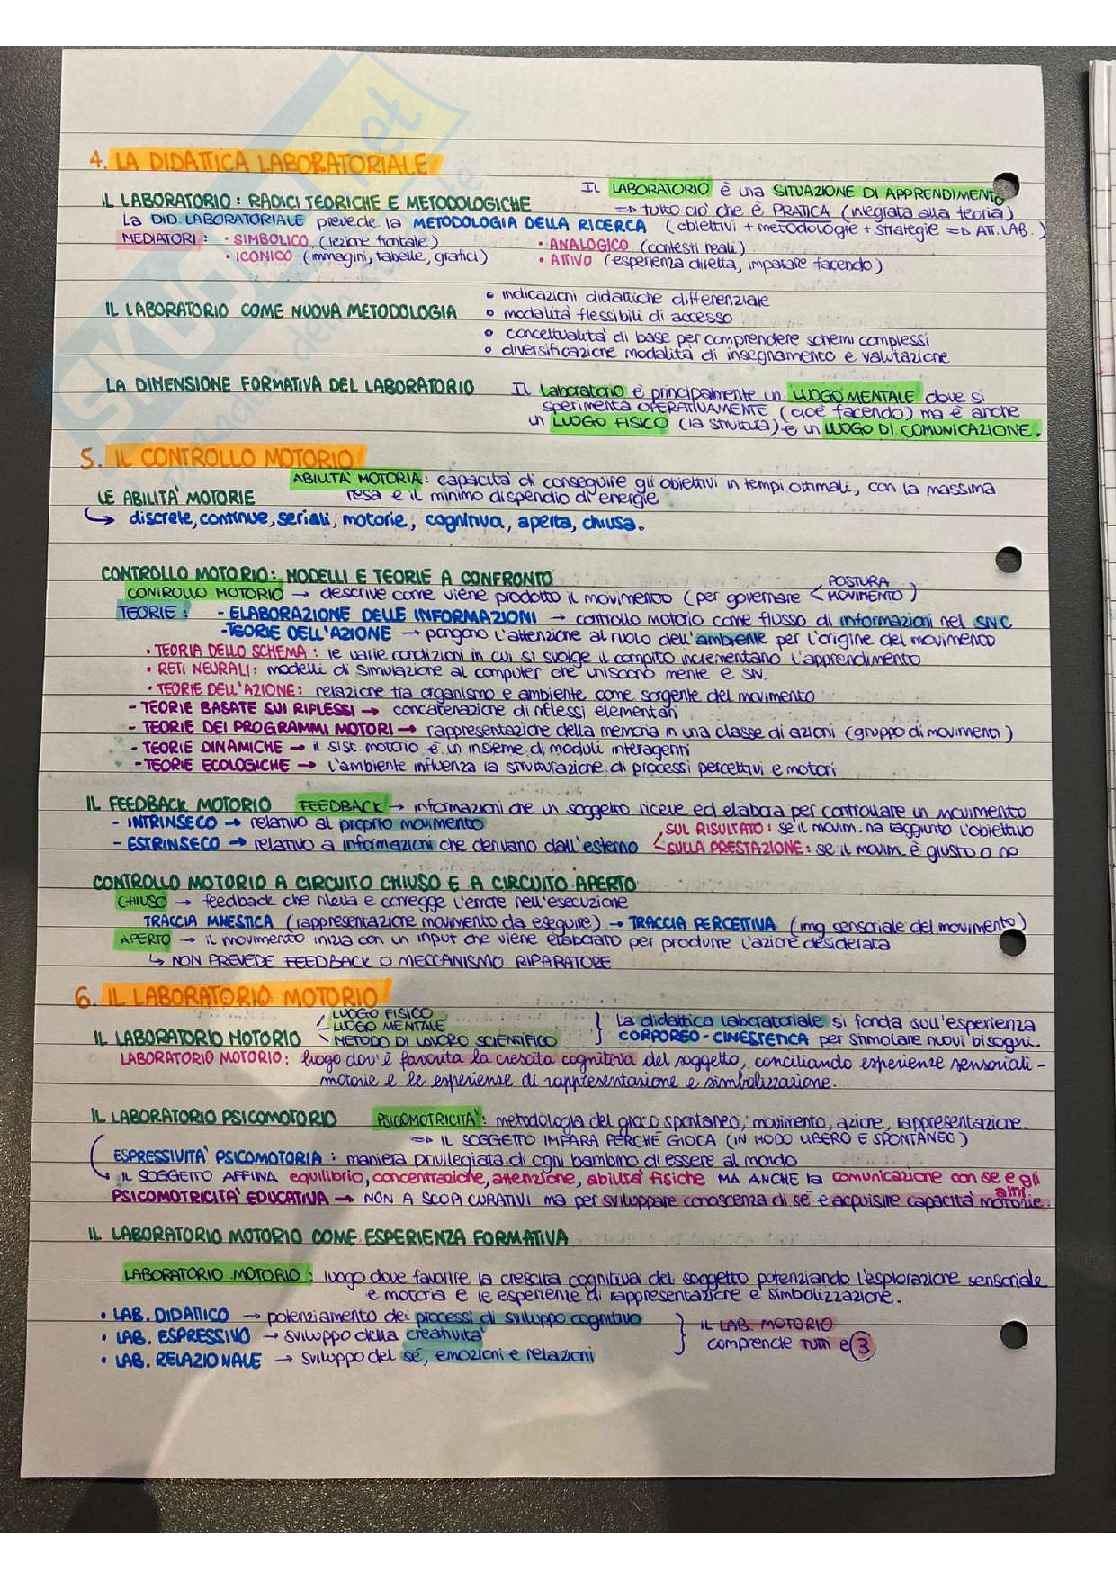 4. LA DIDATTICA LABORATORIALE
IL LABORATORIO: RADICI TEORICHE E METODOLOGICHE
IL LABORATORIO è una SITUAZIONE DI APPRENDIMENTO
=> tutto ciò che è PRATICA (integrata alla teoria)
La DID. LABORATORIALE prevede la METODOLOGIA DELLA RICERCA (obiettivi + metodologie + strategie => ATT. LAB.)
MEDIATORI: • SIMBOLICO (lezione frontale) • ANALOGICO (contesti reali)
• ICONICO (immagini, tabelle, grafici) • ATTIVO (esperienza diretta, imparare facendo)
• indicazioni didattiche differenziate
IL LABORATORIO COME NUOVA METODOLOGIA • modalità flessibili di accesso
• concettualità di base per comprendere schemi complessi
• diversificazione modalità di insegnamento e valutazione
LA DIMENSIONE FORMATIVA DEL LABORATORIO IL Laboratorio è principalmente un LUOGO MENTALE dove si
sperimenta OPERATIVAMENTE (cioè facendo) ma è anche
un LUOGO FISICO (la struttura) e un LUOGO DI COMUNICAZIONE.
5. IL CONTROLLO MOTORIO
ABILITA' MOTORIA: capacità di conseguire gli obiettivi in tempi ottimali, con la massima
LE ABILITA' MOTORIE resa e il minimo dispendio di energie
↳ discrete, continue, seriali, motorie, cognitiva, aperta, chiusa.
CONTROLLO MOTORIO: MODELLI E TEORIE A CONFRONTO
CONTROLLO MOTORIO → descrive come viene prodotto il movimento (per governare < POSTURA MOVIMENTO)
TEORIE: - ELABORAZIONE DELLE INFORMAZIONI → controllo motorio come flusso di informazioni nel SNC
- TEORIE DELL'AZIONE → pongono l'attenzione al ruolo dell'ambiente per l'origine del movimento
• TEORIA DELLO SCHEMA: le varie condizioni in cui si svolge il compito incrementano l'apprendimento
• RETI NEURALI: modelli di simulazione al computer che uniscono mente e SN.
• TEORIE DELL'AZIONE: relazione tra organismo e ambiente come sorgente del movimento
- TEORIE BASATE SUI RIFLESSI → concatenazione di riflessi elementari
- TEORIE DEI PROGRAMMI MOTORI → rappresentazione della memoria in una classe di azioni (gruppo di movimenti)
- TEORIE DINAMICHE → il sist. motorio è un insieme di moduli interagenti
- TEORIE ECOLOGICHE → l'ambiente influenza la strutturazione di processi percettivi e motori
IL FEEDBACK MOTORIO FEEDBACK → informazioni che un soggetto riceve ed elabora per controllare un movimento
- INTRINSECO → relativo al proprio movimento SUL RISULTATO: se il movim. ha raggiunto l'obiettivo
- ESTRINSECO → relativo a informazioni che derivano dall'esterno < SULLA PRESTAZIONE: se il movim. è giusto o no
CONTROLLO MOTORIO A CIRCUITO CHIUSO E A CIRCUITO APERTO
CHIUSO → feedback che rileva e corregge l'errore nell'esecuzione
TRACCIA MNESTICA (rappresentazione movimento da eseguire) → TRACCIA PERCETTIVA (img sensoriale del movimento)
APERTO → il movimento inizia con un input che viene elaborato per produrre l'azione desiderata
↳ NON PREVEDE FEEDBACK O MECCANISMO RIPARATORE
6. IL LABORATORIO MOTORIO
LUOGO FISICO
LUOGO MENTALE
La didattica laboratoriale si fonda sull'esperienza
IL LABORATORIO MOTORIO METODO DI LAVORO SCIENTIFICO } CORPOREO-CINESTETICA per stimolare nuovi bisogni.
LABORATORIO MOTORIO: luogo dov'è favorita la crescita cognitiva del soggetto, conciliando esperienze sensoriali-
motorie e le esperienze di rappresentazione e simbolizzazione.
IL LABORATORIO PSICOMOTORIO PSICOMOTRICITA': metodologia del gioco spontaneo, movimento, azione, rappresentazione.
=> IL SOGGETTO IMPARA PERCHÉ GIOCA (IN MODO LIBERO E SPONTANEO)
ESPRESSIVITA' PSICOMOTORIA: maniera privilegiata di ogni bambino di essere al mondo
↳ IL SOGGETTO AFFINA equilibrio, concentrazione, attenzione, abilità fisiche MA ANCHE la comunicazione con sé e gli altri.
PSICOMOTRICITA' EDUCATIVA → NON A SCOPI CURATIVI ma per sviluppare conoscenza di sé e acquisire capacità motorie.
IL LABORATORIO MOTORIO COME ESPERIENZA FORMATIVA
LABORATORIO MOTORIO: luogo dove favorire la crescita cognitiva del soggetto potenziando l'esplorazione sensoriale
e motoria e le esperienze di rappresentazione e simbolizzazione.
• LAB. DIDATICO → potenziamento dei processi di sviluppo cognitivo
• LAB. ESPRESSIVO → sviluppo della creatività } IL LAB. MOTORIO
comprende tutti e 3
• LAB. RELAZIONALE → sviluppo del sé, emozioni e relazioni